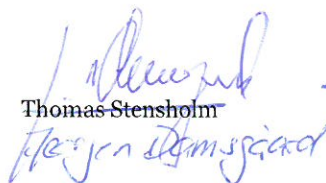 Thomas Stensholm
Jørgen Damsgaard